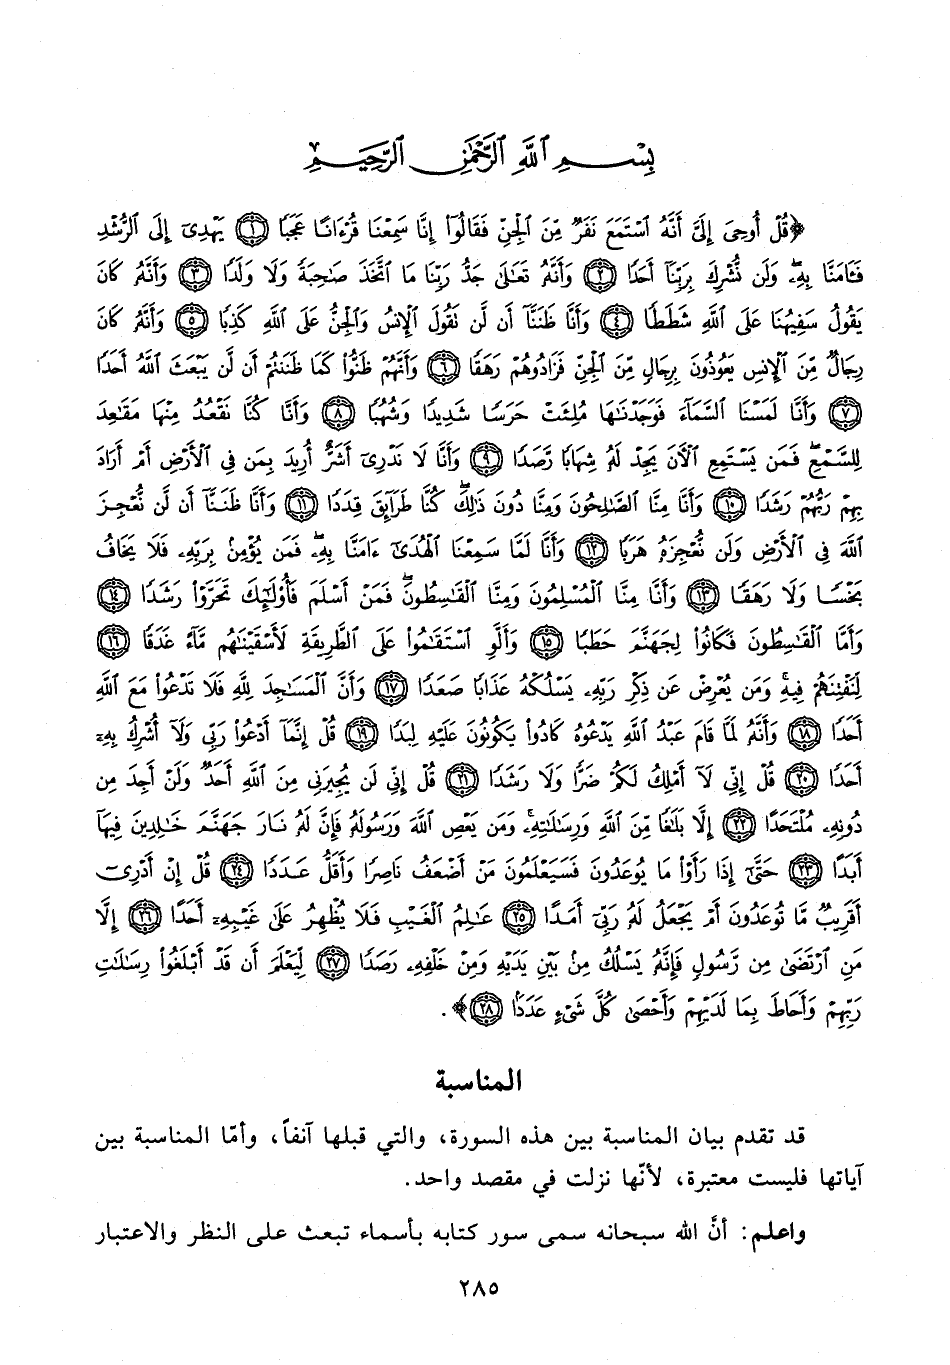 بِسْمِ ٱللَّهِ ٱلرَّحْمَٰنِ ٱلرَّحِيمِ
﴿قُلْ أُوحِىَ إِلَىَّ أَنَّهُ ٱسْتَمَعَ نَفَرٌ مِّنَ ٱلْجِنِّ فَقَالُوٓا۟ إِنَّا سَمِعْنَا قُرْءَانًا عَجَبًا ١ يَهْدِىٓ إِلَى ٱلرُّشْدِ
فَـَٔامَنَّا بِهِۦ ۖ وَلَن نُّشْرِكَ بِرَبِّنَآ أَحَدًا ٢ وَأَنَّهُۥ تَعَٰلَىٰ جَدُّ رَبِّنَا مَا ٱتَّخَذَ صَٰحِبَةً وَلَا وَلَدًا ٣ وَأَنَّهُۥ كَانَ
يَقُولُ سَفِيهُنَا عَلَى ٱللَّهِ شَطَطًا ٤ وَأَنَّا ظَنَنَّآ أَن لَّن نَقُولَ ٱلْإِنسُ وَٱلْجِنُّ عَلَى ٱللَّهِ كَذِبًا ٥ وَأَنَّهُۥ كَانَ
رِجَالٌ مِّنَ ٱلْإِنسِ يَعُوذُونَ بِرِجَالٍ مِّنَ ٱلْجِنِّ فَزَادُوهُمْ رَهَقًا ٦ وَأَنَّهُمْ ظَنُّوا۟ كَمَا ظَنَنتُمْ أَن لَّن يَبْعَثَ ٱللَّهُ أَحَدًا
٧ وَأَنَّا لَمَسْنَا ٱلسَّمَآءَ فَوَجَدْنَٰهَا مُلِئَتْ حَرَسًا شَدِيدًا وَشُهُبًا ٨ وَأَنَّا كُنَّا نَقْعُدُ مِنْهَا مَقَٰعِدَ
لِلسَّمْعِ ۖ فَمَن يَسْتَمِعِ ٱلْآنَ يَجِدْ لَهُۥ شِهَابًا رَّصَدًا ٩ وَأَنَّا لَا نَدْرِىٓ أَشَرٌّ أُرِيدَ بِمَن فِى ٱلْأَرْضِ أَمْ أَرَادَ
بِهِمْ رَبُّهُمْ رَشَدًا ١٠ وَأَنَّا مِنَّا ٱلصَّٰلِحُونَ وَمِنَّا دُونَ ذَٰلِكَ ۖ كُنَّا طَرَآئِقَ قِدَدًا ١١ وَأَنَّا ظَنَنَّآ أَن لَّن نُّعْجِزَ
ٱللَّهَ فِى ٱلْأَرْضِ وَلَن نُّعْجِزَهُۥ هَرَبًا ١٢ وَأَنَّا لَمَّا سَمِعْنَا ٱلْهُدَىٰٓ ءَامَنَّا بِهِۦ ۖ فَمَن يُؤْمِنۢ بِرَبِّهِۦ فَلَا يَخَافُ
بَخْسًا وَلَا رَهَقًا ١٣ وَأَنَّا مِنَّا ٱلْمُسْلِمُونَ وَمِنَّا ٱلْقَٰسِطُونَ ۖ فَمَنْ أَسْلَمَ فَأُو۟لَٰٓئِكَ تَحَرَّوْا۟ رَشَدًا ١٤
وَأَمَّا ٱلْقَٰسِطُونَ فَكَانُوا۟ لِجَهَنَّمَ حَطَبًا ١٥ وَأَلَّوِ ٱسْتَقَٰمُوا۟ عَلَى ٱلطَّرِيقَةِ لَأَسْقَيْنَٰهُم مَّآءً غَدَقًا ١٦
لِّنَفْتِنَهُمْ فِيهِ ۚ وَمَن يُعْرِضْ عَن ذِكْرِ رَبِّهِۦ يَسْلُكْهُ عَذَابًا صَعَدًا ١٧ وَأَنَّ ٱلْمَسَٰجِدَ لِلَّهِ فَلَا تَدْعُوا۟ مَعَ ٱللَّهِ
أَحَدًا ١٨ وَأَنَّهُۥ لَمَّا قَامَ عَبْدُ ٱللَّهِ يَدْعُوهُ كَادُوا۟ يَكُونُونَ عَلَيْهِ لِبَدًا ١٩ قُلْ إِنَّمَآ أَدْعُوا۟ رَبِّى وَلَآ أُشْرِكُ بِهِۦٓ
أَحَدًا ٢٠ قُلْ إِنِّى لَآ أَمْلِكُ لَكُمْ ضَرًّا وَلَا رَشَدًا ٢١ قُلْ إِنِّى لَن يُجِيرَنِى مِنَ ٱللَّهِ أَحَدٌ وَلَنْ أَجِدَ مِن
دُونِهِۦ مُلْتَحَدًا ٢٢ إِلَّا بَلَٰغًا مِّنَ ٱللَّهِ وَرِسَٰلَٰتِهِۦ ۚ وَمَن يَعْصِ ٱللَّهَ وَرَسُولَهُۥ فَإِنَّ لَهُۥ نَارَ جَهَنَّمَ خَٰلِدِينَ فِيهَآ
أَبَدًا ٢٣ حَتَّىٰٓ إِذَا رَأَوْا۟ مَا يُوعَدُونَ فَسَيَعْلَمُونَ مَنْ أَضْعَفُ نَاصِرًا وَأَقَلُّ عَدَدًا ٢٤ قُلْ إِنْ أَدْرِىٓ
أَقَرِيبٌ مَّا تُوعَدُونَ أَمْ يَجْعَلُ لَهُۥ رَبِّىٓ أَمَدًا ٢٥ عَٰلِمُ ٱلْغَيْبِ فَلَا يُظْهِرُ عَلَىٰ غَيْبِهِۦٓ أَحَدًا ٢٦ إِلَّا
مَنِ ٱرْتَضَىٰ مِن رَّسُولٍ فَإِنَّهُۥ يَسْلُكُ مِنۢ بَيْنِ يَدَيْهِ وَمِنْ خَلْفِهِۦ رَصَدًا ٢٧ لِّيَعْلَمَ أَن قَدْ أَبْلَغُوا۟ رِسَٰلَٰتِ
رَبِّهِمْ وَأَحَاطَ بِمَا لَدَيْهِمْ وَأَحْصَىٰ كُلَّ شَىْءٍ عَدَدًۢا ٢٨﴾.
المناسبة
قد تقدم بيان المناسبة بين هذه السورة، والتي قبلها آنفاً، وأمّا المناسبة بين
آياتها فليست معتبرة، لأنّها نزلت في مقصد واحد.
واعلم: أنَّ الله سبحانه سمى سور كتابه بأسماء تبعث على النظر والاعتبار
٢٨٥